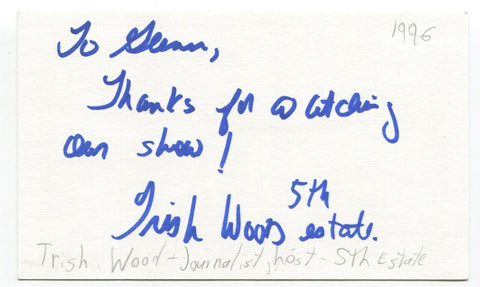 1996
To Glenn,
Thanks for watching
our show!
Trish Wood 5th estate.
Trish Wood - Journalist, host - 5th Estate